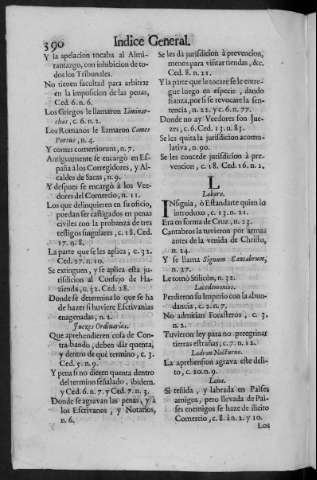 390
Indice General.
Y la apelacion tocaba al Almi-
rantazgo, con inhibicion de to-
dos los Tribunales.
No tienen facultad para arbitrar
en la imposicion de las penas,
Ced. 6. n. 6.
Los Griegos le llamaron
c. 6. n. 2.
Los Romanos le llamaron Comes
Portus, n. 4.
Y comes comerciorum, n. 7.
Antiguamente se encargò en Es-
paña à los Corregidores, y Al-
caldes de Sacas, n. 9.
Y despues se encargò à los Vee-
dores del Comercio, n. 11.
Los que delinquieren en su oficio,
puedan ser castigados en penas
civiles con la probança de tres
testigos singulares, c. 18. Ced.
17. n. 8.
La parte que se les aplica, c. 32.
Ced. 27. n. 10.
Se extinguen, y se aplica esta ju-
risdicion al Consejo de Ha-
zienda, c. 32. Ced. 28.
Donde se determina lo que se ha
de hazer si huviere Escrivanias
enagenadas, n. 2.
Juezes Ordinarios.
Que aprehendieren cosa de Con-
trabando, deben dàr quenta,
y dentro de què termino, c. 3.
Ced. 5. n. 9.
Y pena si no dieren quenta dentro
del termino señalado, ibidem.
y Ced. 6. n. 7. y Ced. 7. n. 3.
Donde se agravan las penas, y à
los Escrivanos, y Notarios,
n. 6.
Se les dà jurisdicion à prevencion,
menos para visitar tiendas, &c.
Ced. 8. n. 21.
Y la parte que le tocare se le entre-
gue luego en especie, dando
fiança, por si se revocare la sen-
tencia, n. 22. y c. 6. n. 77.
Donde no ay Veedores son Jue-
zes, c. 6. Ced. 13. n. 83.
Se les quita la jurisdicion acomu-
lativa, n. 90.
Se les concede jurisdicion à pre-
vencion, c. 18. Ced. 16. n. 2.
L
Labaro.
INsignia, ò Estandarte quien lo
introduxo, c. 13. n. 21.
Era en forma de Cruz, n. 23.
Cantabros la tuvieron por armas
antes de la venida de Christo,
n. 24.
Y se llama Signum Cantabrum,
n. 27.
Le tomò Silicon, n. 32.
Lacedemonios.
Perdieron su Imperio con la abun-
dancia, c. 2. n. 7.
No admitian Forasteros, c. 3.
n. 2.
Tuvieron ley para no peregrinar
tierras estrañas, c. 7. n. 12.
Ladron Nocturno.
La aprehension agrava este deli-
to, c. 20. n. 9.
Lana.
Si teñida, y labrada en Paises
amigos, pero llevada de Pai-
ses enemigos se haze de ilicito
Comercio, c. 8. à n. 2. y 10.
Los